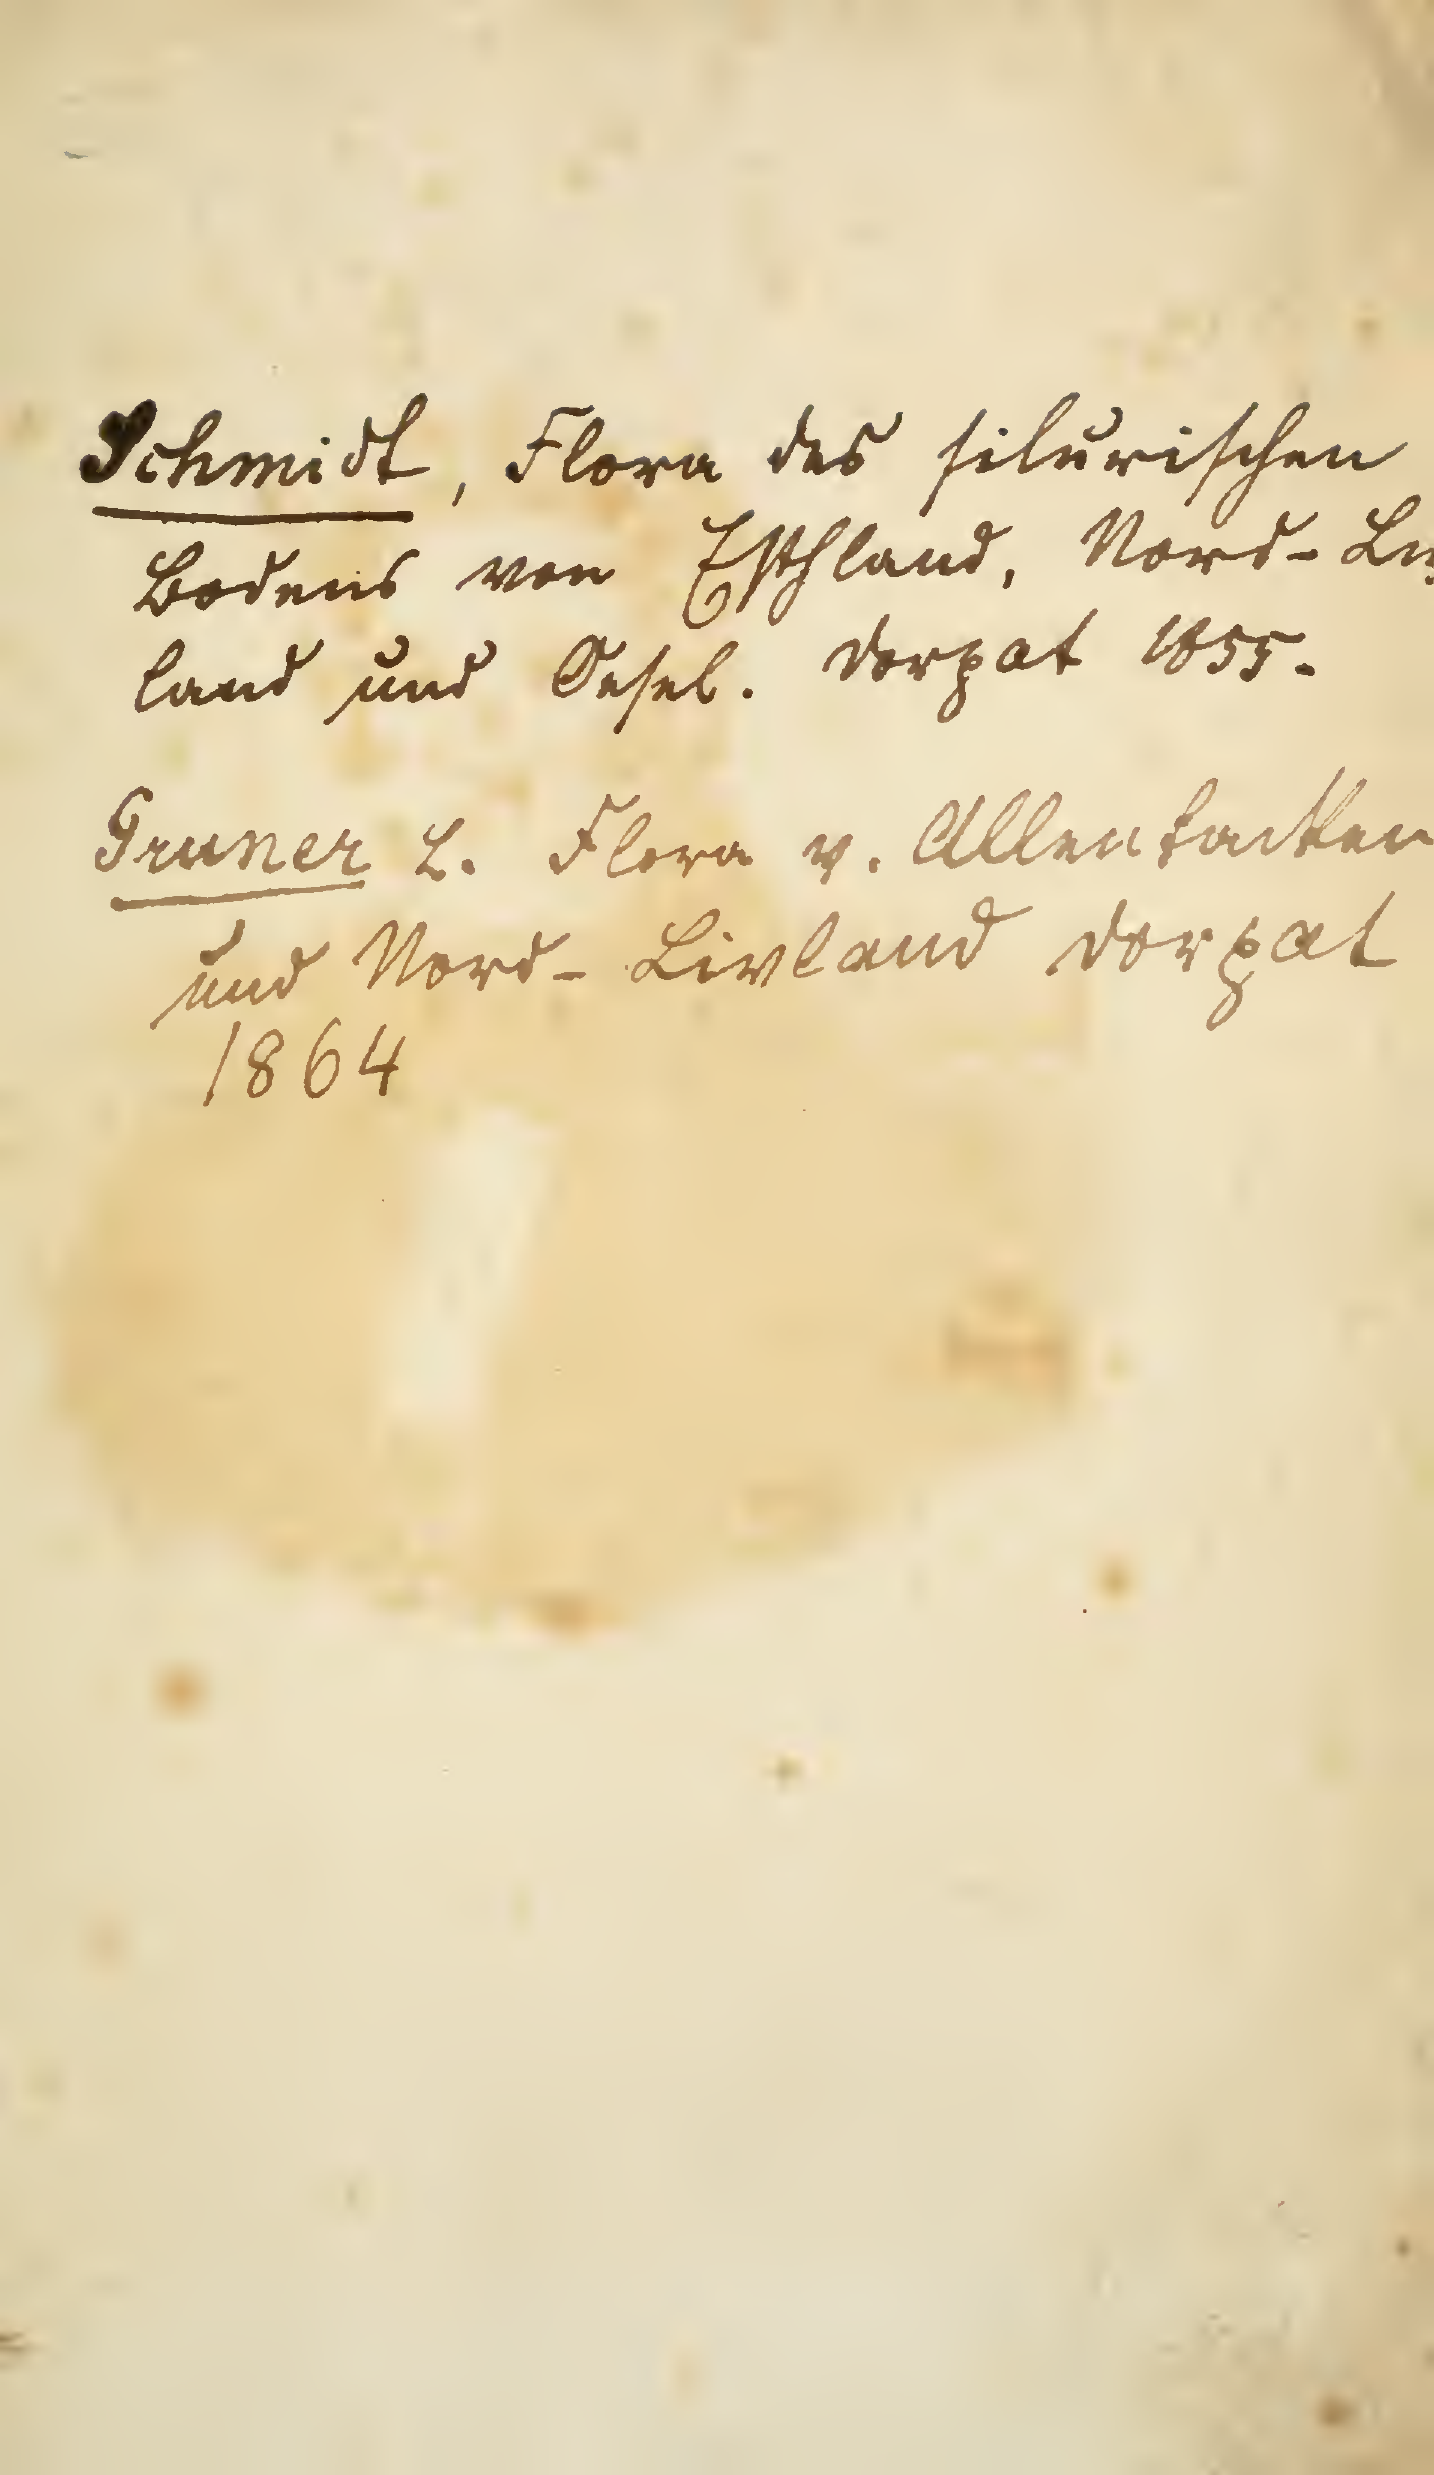 Schmidt, Flora des silurischen
Bodens von Esthland, Nord-Liv
land und Oesel. Dorpat 1855.
Gruner L. Flora v. Allentacken
und Nord-Livland Dorpat
1864